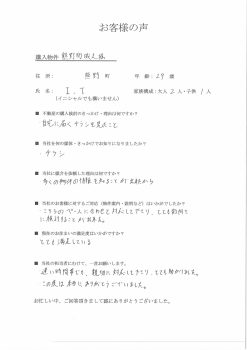 お客様の声
購入物件 熊野町城之堀
住 所： 熊野 町 年 齢：29 歳
氏 名： I . T 家族構成：大人 2 人・子供 1 人
（イニシャルでも構いません）
■ 不動産の購入検討のきっかけ・理由は何ですか？
自宅に届くチラシを見たこと
■ 当社を何の媒体・きっかけでお知りになりましたか？
チラシ
■ 当社に媒介を依頼した理由は何ですか？
多くの物件の情報を知ることが出来たから
■ 当社のお客様に対するご対応（物件案内・説明など）はいかがでしたか？
こちらのペースに合わせた対応をして下さり、とても前向き
に検討することが出来た。
■ 現在のお住まいの満足度はいかがですか？
とても満足している
■ 当社の担当者に対して、一言お願いします。
遅い時間帯でも、親切に対応して下さり、とても助かりました。
この度は本当にありがとうございました。
お忙しい中、ご回答頂きまして誠にありがとうございました。